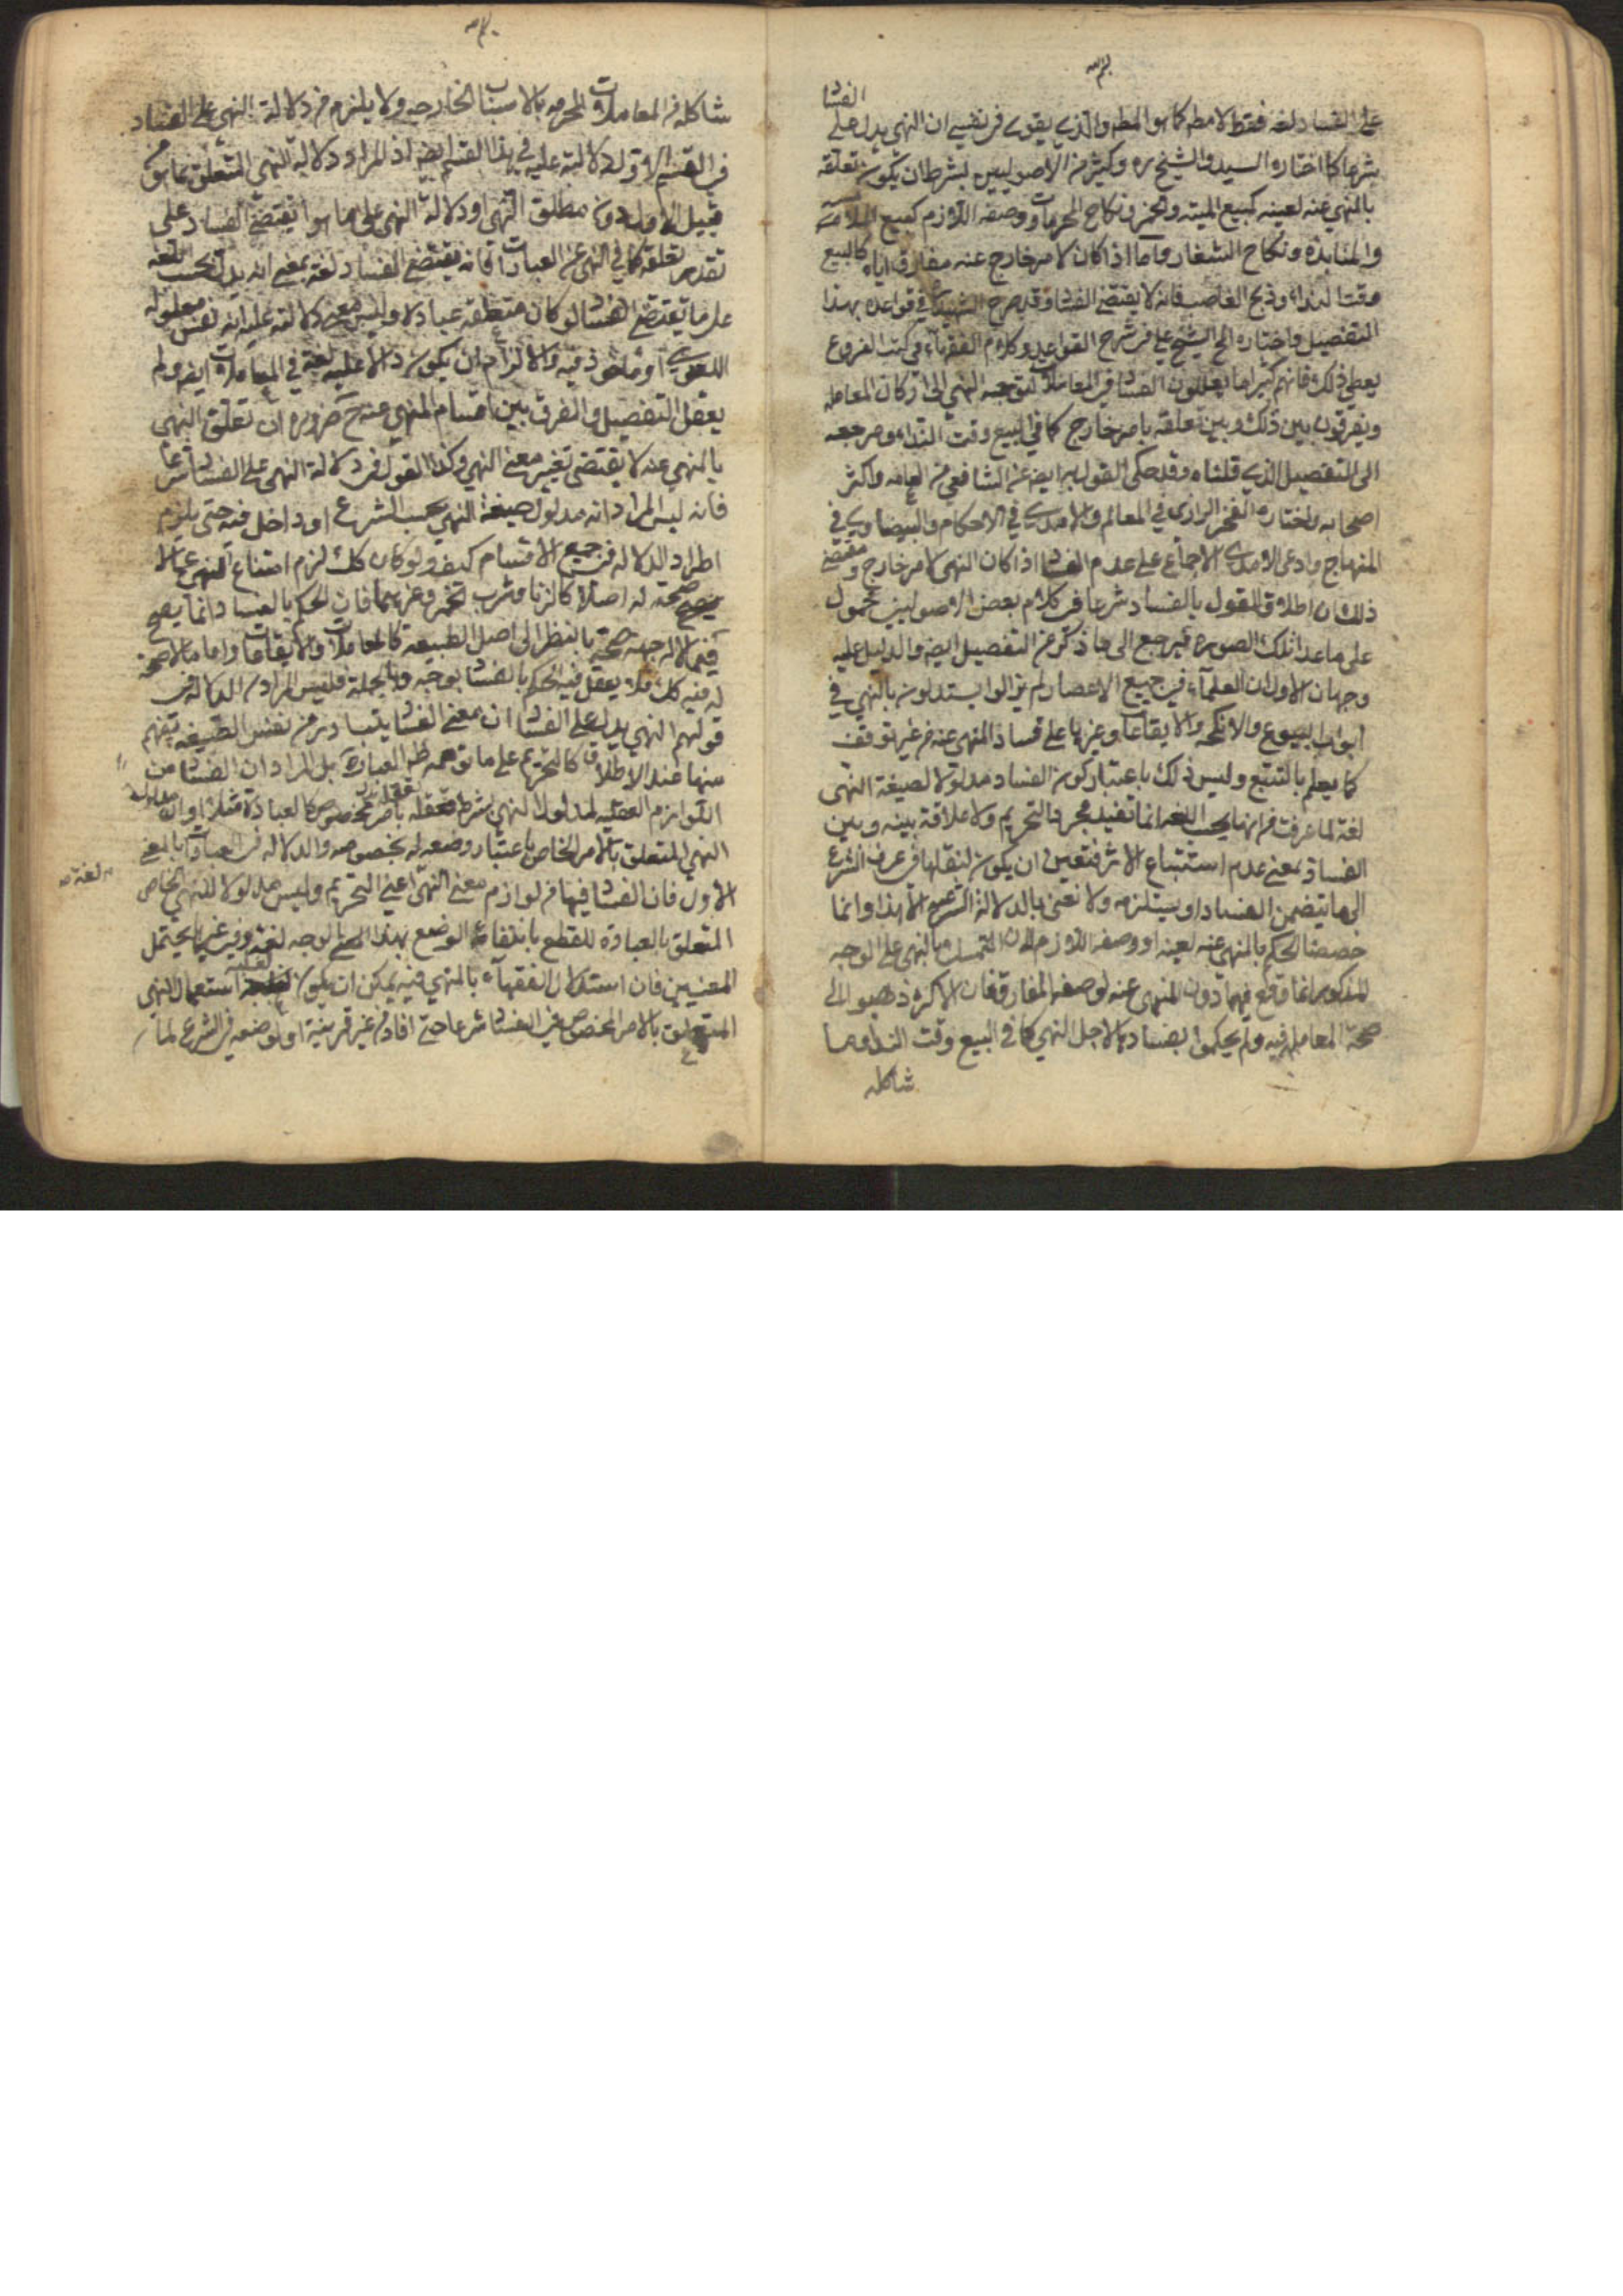 على الفساد لغة فقط لا مطم كما هو المطم والذي يقوى في نفسي ان النهي يدل على
الفسا
شرعا كما اختاره السيد والشيخ ره وكثير من الاصوليين بشرط ان يكون تعلقه
بالمنهي عنه لعينه كبيع الميته والخمر ونكاح المحرمات ووصفه اللازم كبيع الملامسه
والمنابذة ونكاح الشغار واما اذا كان لامر خارج عنه مفارق اياه كالبيع
وقت النداء وذبح الغاصب فانه لا يقتضي الفسا وقد صرح الشهيد في قواعده بهذا
التفصيل واختاره الشيخ علي في شرح القواعد وكلام الفقهاء في كتب الفروع
يعطي ذلك فانهم كثيرا ما يعللون الفسا في المعاملات بتوجه النهي الى اركان المعامله
ويفرقون بين ذلك وبين تعلقه بامر خارج كما في البيع وقت النداء ومرجعه
الى التفصيل الذي قلناه وقد حكى القول به ايضه عن الشافعي من العامه واكثر
اصحابه واختاره الفخر الرازي في المعالم والامدي في الاحكام والبيضاوي في
المنهاج وادعى الامدي الاجماع على عدم الفسا اذا كان النهي لامر خارج ومقتضى
ذلك ان اطلاق القول بالفساد شرعا في كلام بعض الاصوليين محمول
على ما عدا تلك الصوره فيرجع الى ما ذكر من التفصيل ايضه والدليل عليه
وجهان الاول ان العلماء في جميع الاعصار لم يزالوا يستدلون بالنهي في
ابواب البيوع والانكحه والايقاعات وغيرها على فساد المنهي عنه من غير توقف
كما يعلم بالتتبع وليس ذلك باعتبار كون الفساد مدلولا لصيغة النهي
لغة لما عرفت من انها بحسب اللغه انما تفيد مجرد التحريم ولا علاقة بينه وبين
الفساد بمعنى عدم استتباع الاثر فتعين ان يكون لنقلها في عرف الشرع
الى ما يتضمن الفساد او يستلزمه ولا نعني بالدلالة الشرعيه الا هذا وانما
خصصنا الحكم بالمنهي عنه لعينه او وصفه اللازم لان التمسك بالنهي على الوجه
المذكور انما وقع فيهما دون المنهي عنه لوصفه المفارق فان الاكثر ذهبوا الى
صحة المعامله فيه ولم يحكموا بفسادها لاجل النهي كما في البيع وقت النداء وما
شاكله
شاكله في المعاملات المحرمه بالاسباب الخارجيه ولا يلزم من دلالة النهي على الفساد
في القسم الاول دلالته عليه في هذا القسم ايضه اذ المراد دلالة النهي المتعلق بما هو من
قبيل الاول دون مطلق النهي او دلالة النهي على ما هو يقتضي الفساد على
تقدير تعلقه كما في النهي عن العبادات فانه يقتضي الفساد لغة بمعنى انه يدل بحسب اللغه
على ما يقتضي الفسا لو كان متعلقه عبادة وليس معنى دلالته عليه انه نفس مدلوله
اللغوي او ماخوذ فيه والا لزم ان يكون دالا عليه لغة في المعاملات ايضه ولم
يعقل التفصيل والفرق بين اقسام المنهي عنه ح ضروره ان تعلق النهي
بالمنهي عنه لا يقتضي تغير معنى النهي وكذا القول في دلالة النهي على الفسا شرعا
فانه ليس المراد انه مدلول صيغة النهي بحسب الشرع او داخل فيه حتى يلزم
اطراد الدلاله في جميع الاقسام كيف ولو كان كك لزم امتناع النهي عما لا
صحة له اصلا كالزنا وشرب الخمر وغيرهما فان الحكم بالفساد انما يصح
فيما له جهة صحة بالنظر الى اصل الطبيعة كالمعاملات والايقاعات واما ما لا صحة
له فيه كك فلا يعقل فيه الحكم بالفسا بوجه وبالجملة فليس المراد من الدلاله في
قولهم النهي يدل على الفسا ان معنى الفسا يتبادر من نفس الصيغه ويفهم
منها عند الاطلاق كالتحريم على ما توهمه ظ العباره بل المراد ان الفسا من
اللوازم العقليه لمدلول النهي بشرط تعلقه بامر مخصوص كالعبادة مثلا او ان مدلول
النهي المتعلق بالامر الخاص باعتبار وضعه له بخصوصه والدلاله في العبادات بالمعنى
الاول فان الفسا فيها من لوازم معنى النهي اعني التحريم وليس مدلولا للنهي الخاص
المتعلق بالعبادة للقطع بانتفاء الوضع بهذا الوجه لغة وفي غيرها يحتمل
المعنيين فان استدلال الفقهاء بالنهي فيه يمكن ان يكون استعمال النهي
المتعلق بالامر المخصوص في الفسا شرعا حتى افاده من غير قرينة او لوضعه في الشرع لما
لغة